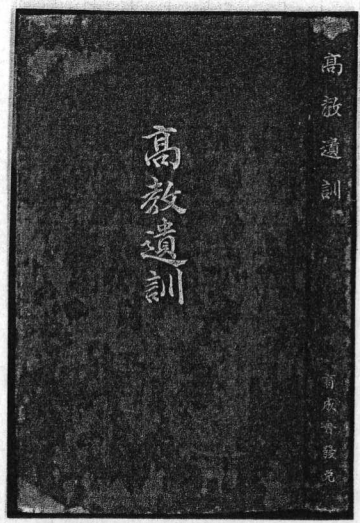 高教遺訓
高教遺訓
育成會發兌